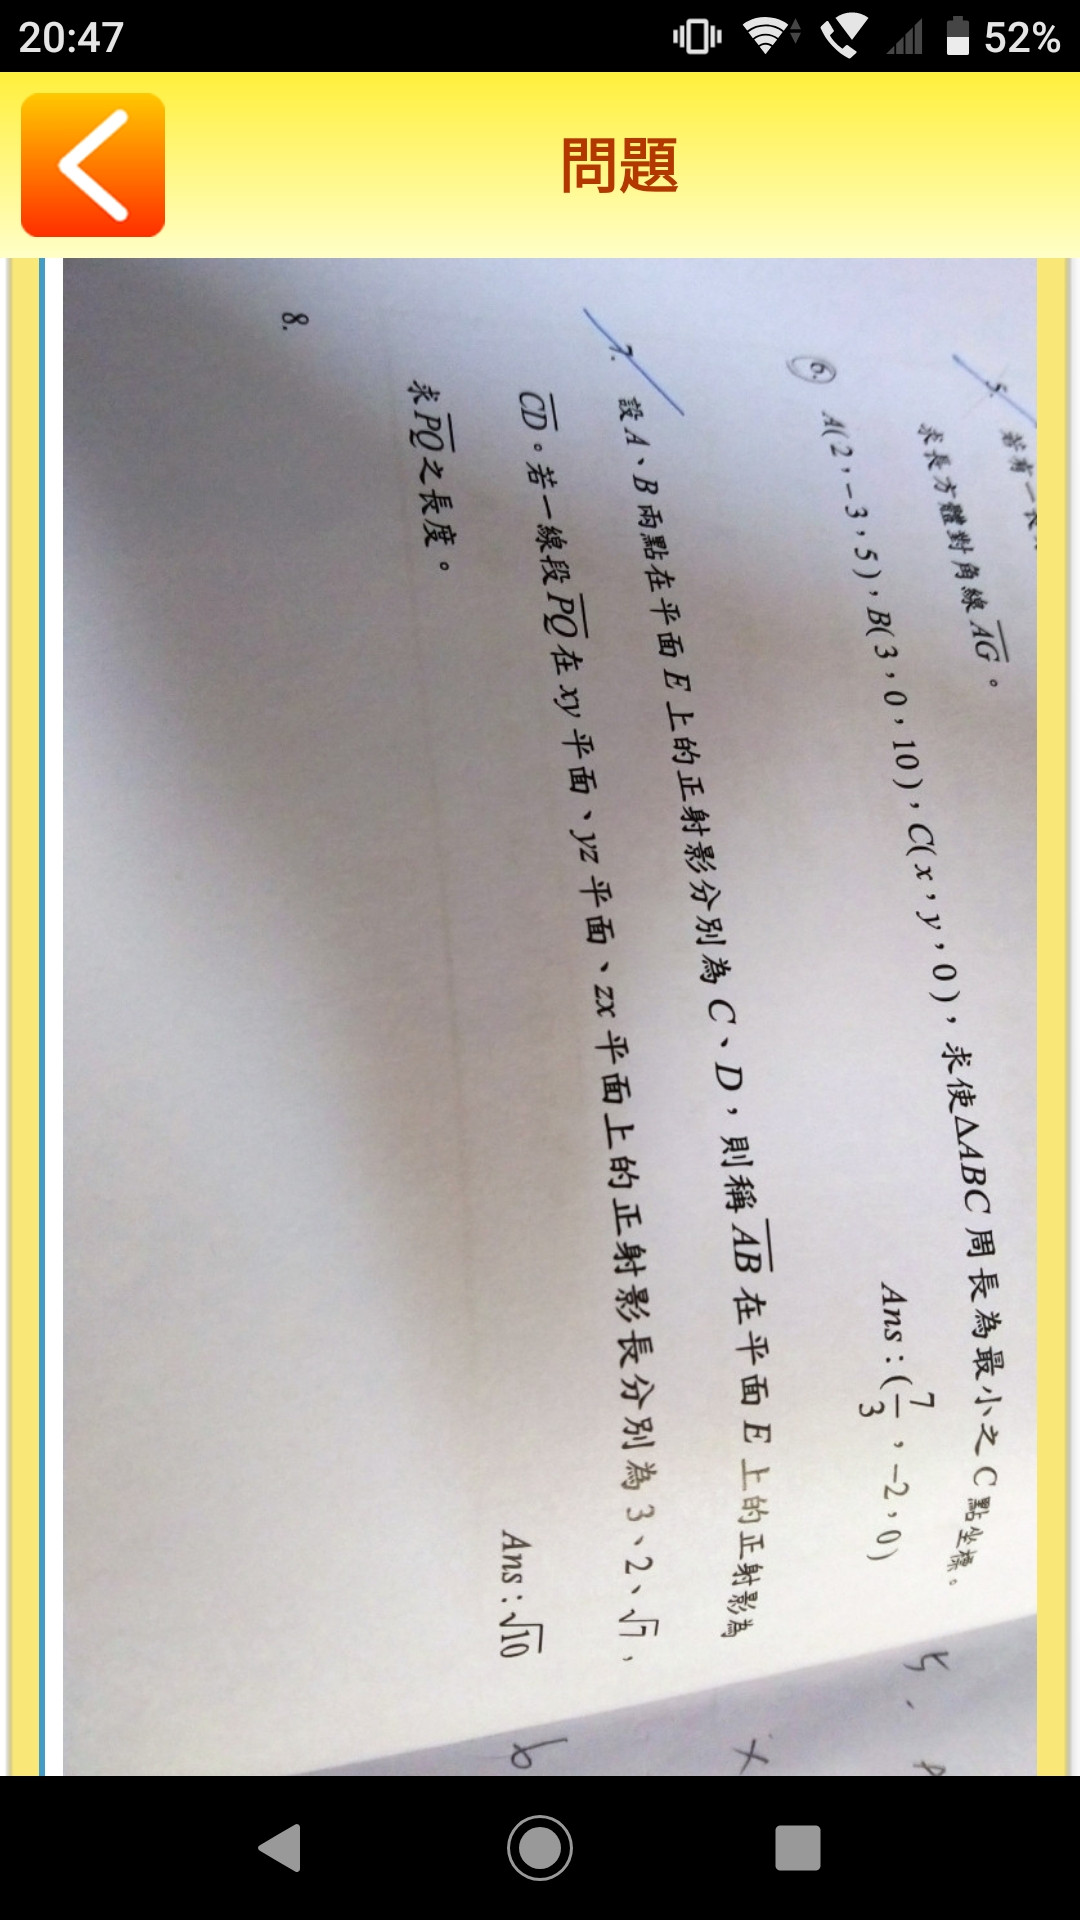 20:47
52%
問題
5. 若有一長
求長方體對角線 AG。
6. A(2,-3,5),B(3,0,10),C(x,y,0),求使△ABC 周長為最小之 C 點坐標。
Ans:(7/3,-2,0)
7. 設 A、B 兩點在平面 E 上的正射影分別為 C、D,則稱 AB 在平面 E 上的正射影為
CD。若一線段 PQ 在 xy 平面、yz 平面、zx 平面上的正射影長分別為 3、2、√7,
求 PQ 之長度。
Ans:√10
8.
5.
x
b